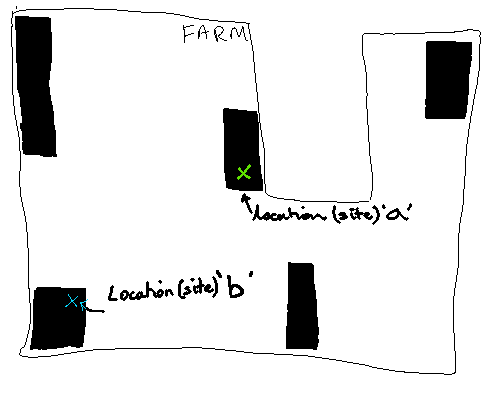 FARM
Location (site) 'a'
Location (site) 'b'